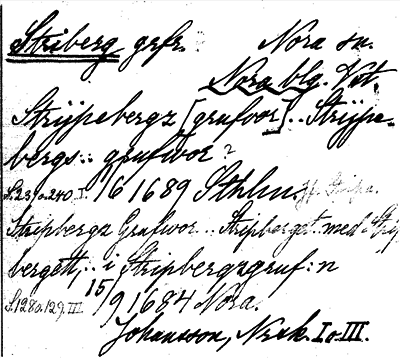 Striberg gfr. Nora sn.
Nora blg. Vstm.
Strijpebergz [grufvor].. Strijpe-
bergs.. grufwor?
S. 239 o. 240. I. 16/6 1689 Sthlm.
Stripbergz Grufwor.. Stripberget.. med Strip
bergett,.. i Stripbergzgruf:n
S. 128 o. 129. III. 15/9 1684 Nora.
Johansson, Norsk. I o. III.